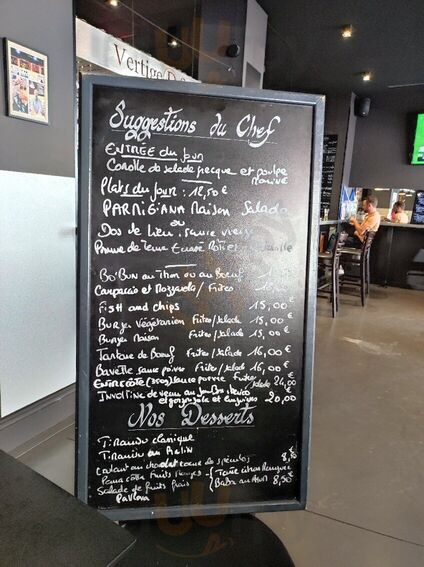 Vertige
Suggestions du Chef
ENTRÉE du Jour
Corolle de salade grecque et poulpe
mariné
Plats du jour : 12,50€
PARMIGIANA Maison Salade
ou
Dos de lieu, sauce vierge
Pomme de Terre
Bo'Bun au Thon ou au Boeuf
Carpaccio et Mozzarella / Frites
Fish and chips 15,00€
Burger Végétarien Frites/salade 15,00€
Burger Maison Frites/salade 15,00€
Tartare de Boeuf Frites/salade 16,00€
Bavette sauce poivre Frites/salade 16,00€
Entrecôte (300g) sauce poivre Frites/salade 24,00
Involtine de veau au
et gorgonzola et 20,00
Nos Desserts
Tiramisu classique
Tiramisu au
Coulant au chocolat coeur de spéculos 8,50€
Panna cotta fruits rouges - Tarte citron Meringuée
Salade de fruits frais Baba au Rhum 8,50€
Pavlova